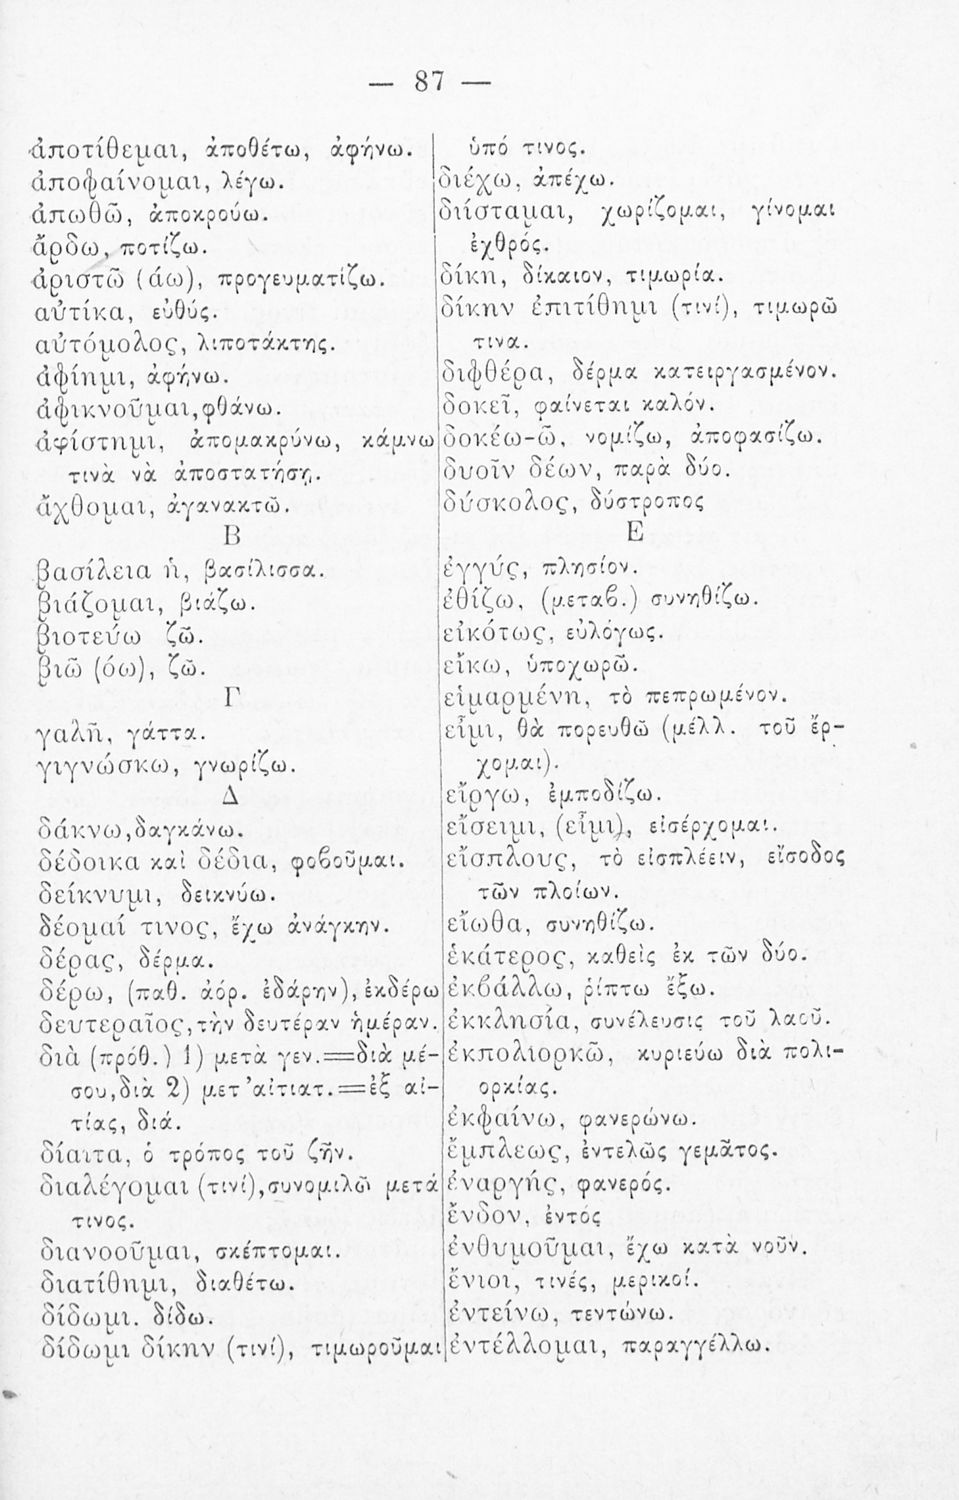 — 87 —
ἀποτίθεμαι, ἀποθέτω, ἀφήνω.
ἀποφαίνομαι, λέγω.
ἀπωθῶ, ἀποκρούω.
ἄρδω, ποτίζω.
ἀριστῶ (άω), προγευματίζω.
αὐτίκα, εὐθύς.
αὐτόμολος, λιποτάκτης.
ἀφίημι, ἀφήνω.
ἀφικνοῦμαι, φθάνω.
ἀφίστημι, ἀπομακρύνω, κάμνω
τινὰ νὰ ἀποστατήσῃ.
ἄχθομαι, ἀγανακτῶ.
Β
βασίλεια ἡ, βασίλισσα.
βιάζομαι, βιάζω.
βιοτεύω ζῶ.
βιῶ (όω), ζῶ.
Γ
γαλῆ, γάττα.
γιγνώσκω, γνωρίζω.
Δ
δάκνω, δαγκάνω.
δέδοικα καὶ δέδια, φοβοῦμαι.
δείκνυμι, δεικνύω.
δέομαί τινος, ἔχω ἀνάγκην.
δέρας, δέρμα.
δέρω, (παθ. ἀόρ. ἐδάρην), ἐκδέρω
δευτεραῖος, τὴν δευτέραν ἡμέραν.
διὰ (πρόθ.) 1) μετὰ γεν.=διὰ μέ-
σου, διὰ 2) μετ' αἰτιατ.=ἐξ αἰ-
τίας, διά.
δίαιτα, ὁ τρόπος τοῦ ζῆν.
διαλέγομαι (τινί), συνομιλῶ μετά
τινος.
διανοοῦμαι, σκέπτομαι.
διατίθημι, διαθέτω.
δίδωμι. δίδω.
δίδωμι δίκην (τινί), τιμωροῦμαι
ὑπό τινος.
διέχω, ἀπέχω.
διίσταμαι, χωρίζομαι, γίνομαι
ἐχθρός.
δίκη, δίκαιον, τιμωρία.
δίκην ἐπιτίθημι (τινί), τιμωρῶ
τινα.
διφθέρα, δέρμα κατειργασμένον.
δοκεῖ, φαίνεται καλόν.
δοκέω-ῶ, νομίζω, ἀποφασίζω.
δυοῖν δέων, παρὰ δύο.
δύσκολος, δύστροπος
Ε
ἐγγύς, πλησίον.
ἐθίζω, (μεταβ.) συνηθίζω.
εἰκότως, εὐλόγως.
εἴκω, ὑποχωρῶ.
εἱμαρμένη, τὸ πεπρωμένον.
εἶμι, θὰ πορευθῶ (μέλλ. τοῦ ἔρ-
χομαι).
εἴργω, ἐμποδίζω.
εἴσειμι, (εἶμι), εἰσέρχομαι.
εἴσπλους, τὸ εἰσπλέειν, εἴσοδος
τῶν πλοίων.
εἴωθα, συνηθίζω.
ἑκάτερος, καθεὶς ἐκ τῶν δύο.
ἐκβάλλω, ῥίπτω ἔξω.
ἐκκλησία, συνέλευσις τοῦ λαοῦ.
ἐκπολιορκῶ, κυριεύω διὰ πολι-
ορκίας.
ἐκφαίνω, φανερώνω.
ἔμπλεως, ἐντελῶς γεμᾶτος.
ἐναργής, φανερός.
ἔνδον, ἐντός
ἐνθυμοῦμαι, ἔχω κατὰ νοῦν.
ἔνιοι, τινές, μερικοί.
ἐντείνω, τεντώνω.
ἐντέλλομαι, παραγγέλλω.